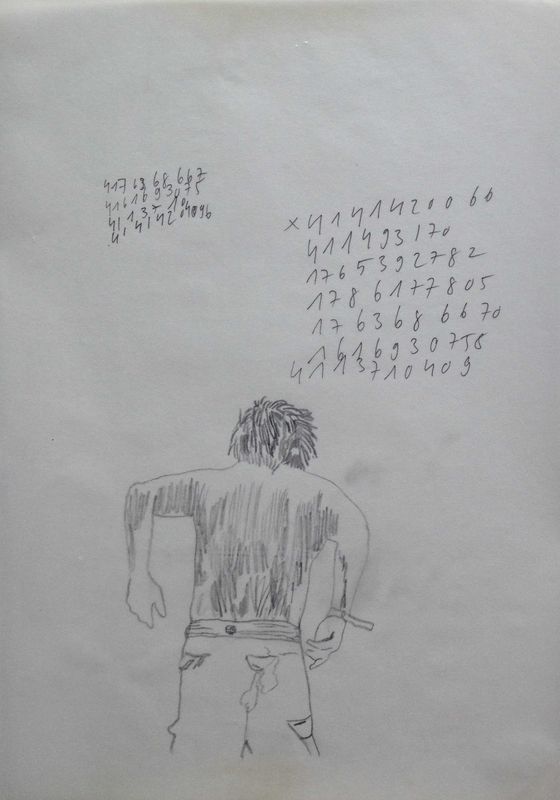 417 63 68 667
416 16 93 075
41 1 37 104
41 41 42 04096
× 41 41 42 00 60
41 14 93 170
176 5392782
178 6177805
17 6368 6670
1616930758
4113710409